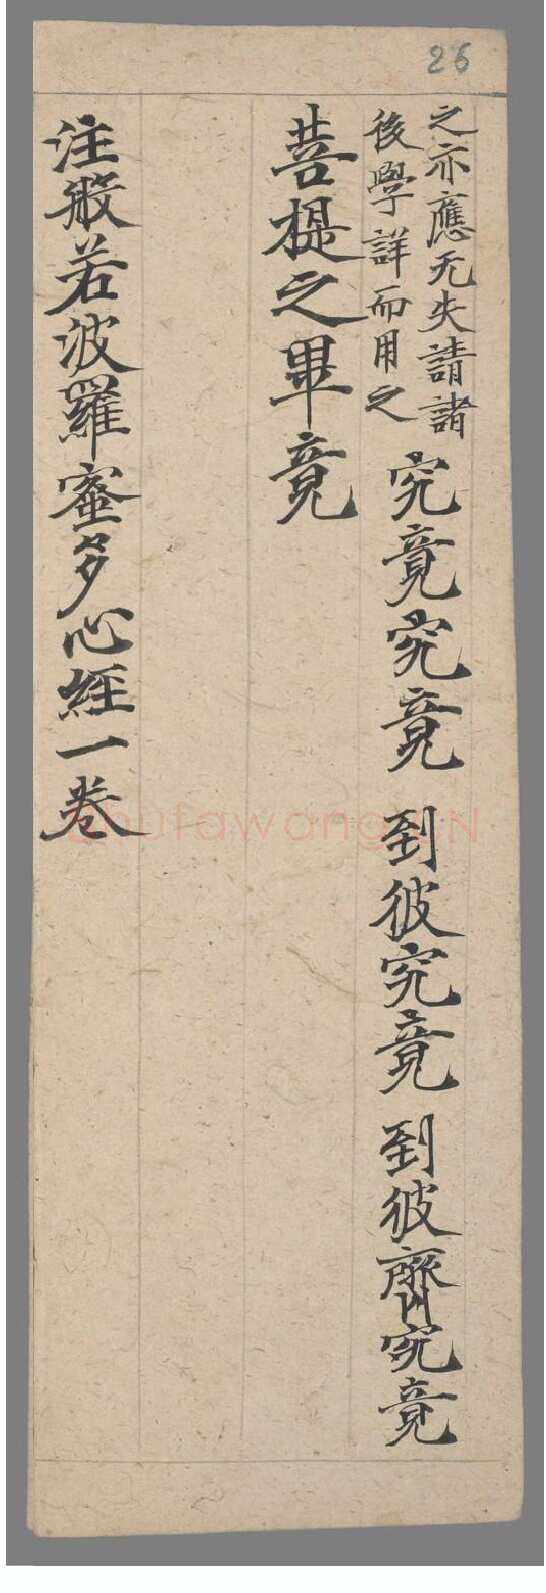 26
之亦應无失請諸
後學詳而用之
究竟究竟 到彼究竟 到彼齊究竟
菩提之畢竟
注般若波羅蜜多心經一卷
shufawang.CN